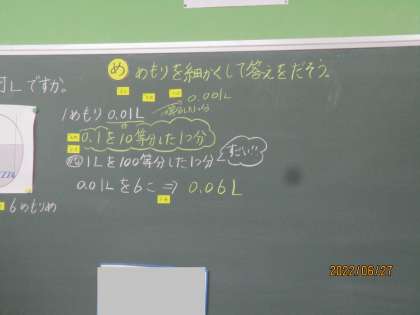 め めもりを細かくして答えをだそう。
Lですか。
0.001L
1めもり 0.01L
0.1を10等分した1つ分
1Lを100等分した1つ分
すごい!!
0.01Lを6こ ⇒ 0.06L
6めもりめ
2022/06/27